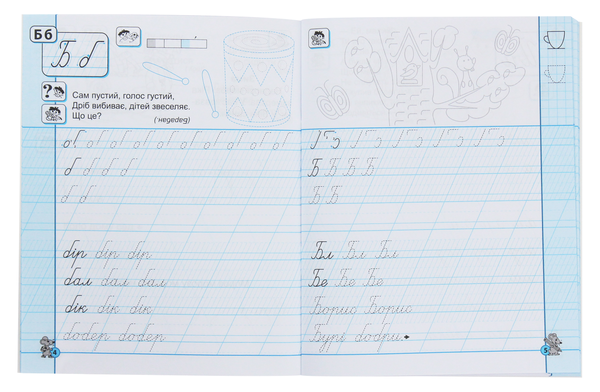 Бб
Б б
Сам пустий, голос густий,
Дріб вибиває, дітей звеселяє.
Що це?
(Барабан.)
б б б б
б б
бір бір бір
бал бал бал
бік бік бік
бобер бобер
4
Б Б Б Б
Б Б
Бл Бл Бл
Бе Бе Бе
Борис Борис
Бурі бобри.
5